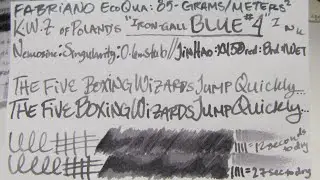 FABRIANO ECOQUA: 85-GRAMS/METERS²
K.W.Z OF POLAND'S "IRON-GALL BLUE #4" INK
Nemosine: Singularity: 0.6mm stub // JINHAO:
THE FIVE BOXING WIZARDS JUMP QUICKLY...
THE FIVE BOXING WIZARDS JUMP QUICKLY...
=12 seconds to dry
=27 sec to dry